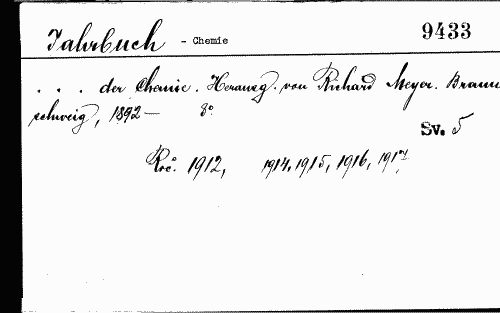 Jahrbuch - Chemie 9433
. . . der Chemie. Herausg. von Richard Meyer. Braun
schweig, 1892— 8°
Sv. 5
Roč. 1912, 1914, 1915, 1916, 1917,